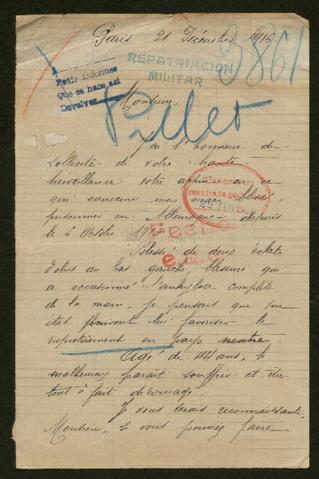 Paris 21 Décembre 1916
REPATRIACIÓN
MILITAR
3861
Pedir informes
Que se hace así
Devolver
Monsieur,
Pillet
J'ai l'honneur de
solliciter de votre haute
bienveillance votre appui en ce
qui concerne mon mari blessé
prisonnier en Allemagne depuis
le 6 Octobre
Blessé de deux éclats
d'obus au bras gauche, blessure qui
a occasionné l'ankylose complète
de la main, je pensais que son
état pouvait lui favoriser le
rapatriement en pays neutre.
Agé de 44 ans, le
malheureux paraît souffrir et être
tout à fait découragé
Je vous serais reconnaissante,
Monsieur, si vous pouviez faire